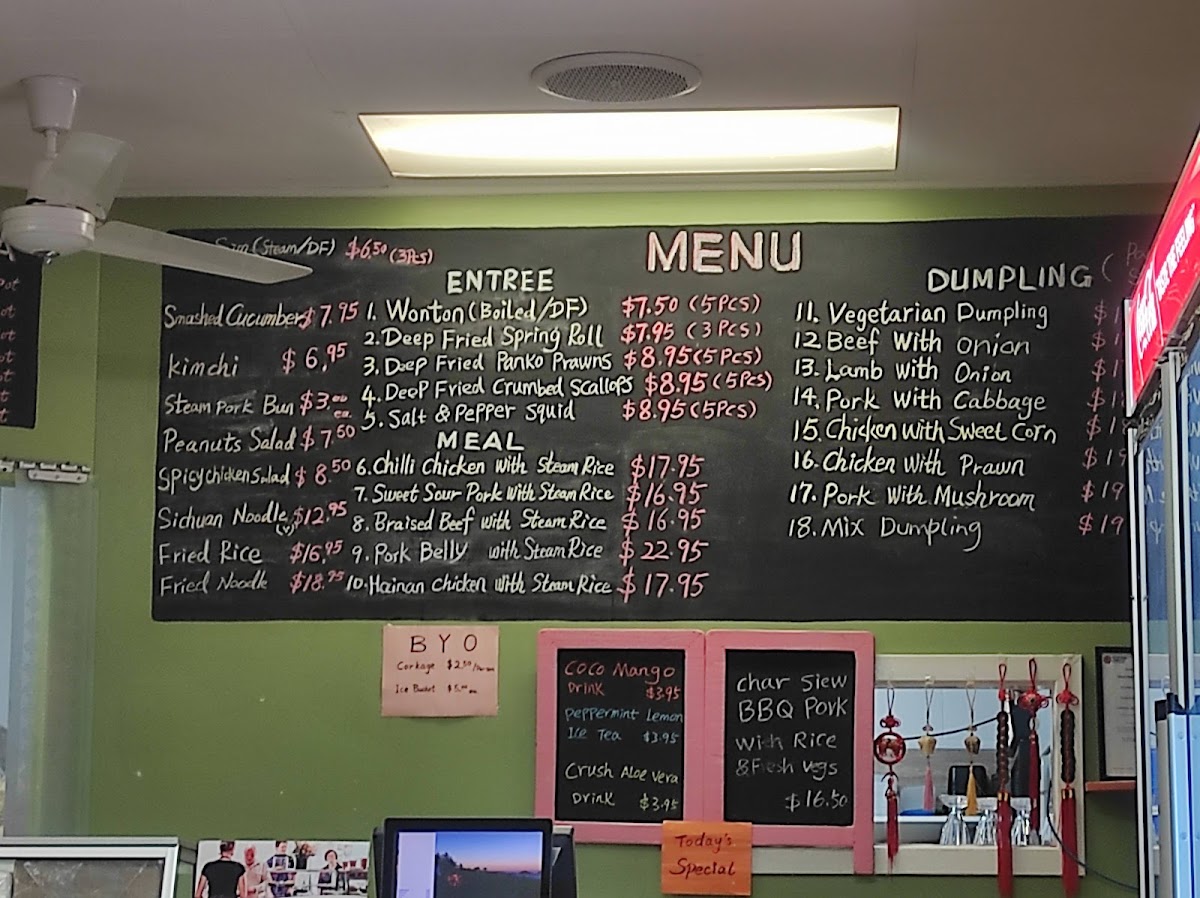 MENU
(Steam/DF) $6.50 (3Pcs)
Smashed Cucumber $7.95
kimchi $6.95
Steam Pork Bun $3.00 ea.
Peanuts Salad $7.50
Spicy Chicken Salad $8.50
Sichuan Noodle (V) $12.95
Fried Rice $16.95
Fried Noodle $18.95
ENTREE
1. Wonton (Boiled/DF) $7.50 (5Pcs)
2. Deep Fried Spring Roll $7.95 (3Pcs)
3. Deep Fried Panko Prawns $8.95 (5Pcs)
4. Deep Fried Crumbed Scallops $8.95 (5Pcs)
5. Salt & Pepper Squid $8.95 (5Pcs)
MEAL
6. Chilli Chicken with Steam Rice $17.95
7. Sweet Sour Pork with Steam Rice $16.95
8. Braised Beef with Steam Rice $16.95
9. Pork Belly with Steam Rice $22.95
10. Hainan Chicken with Steam Rice $17.95
DUMPLING (
11. Vegetarian Dumpling
12 Beef With Onion
13. Lamb With Onion
14. Pork With Cabbage
15. Chicken With Sweet Corn
16. Chicken With Prawn $19
17. Pork With Mushroom $19
18. Mix Dumpling $19
BYO
Corkage $2.50
Ice Bucket
Coco Mango
Drink $3.95
Peppermint Lemon
Ice Tea $3.95
Crush Aloe Vera
Drink $3.95
Char Siew
BBQ Pork
With Rice
& Fresh Vegs
$16.50
Today's
Special